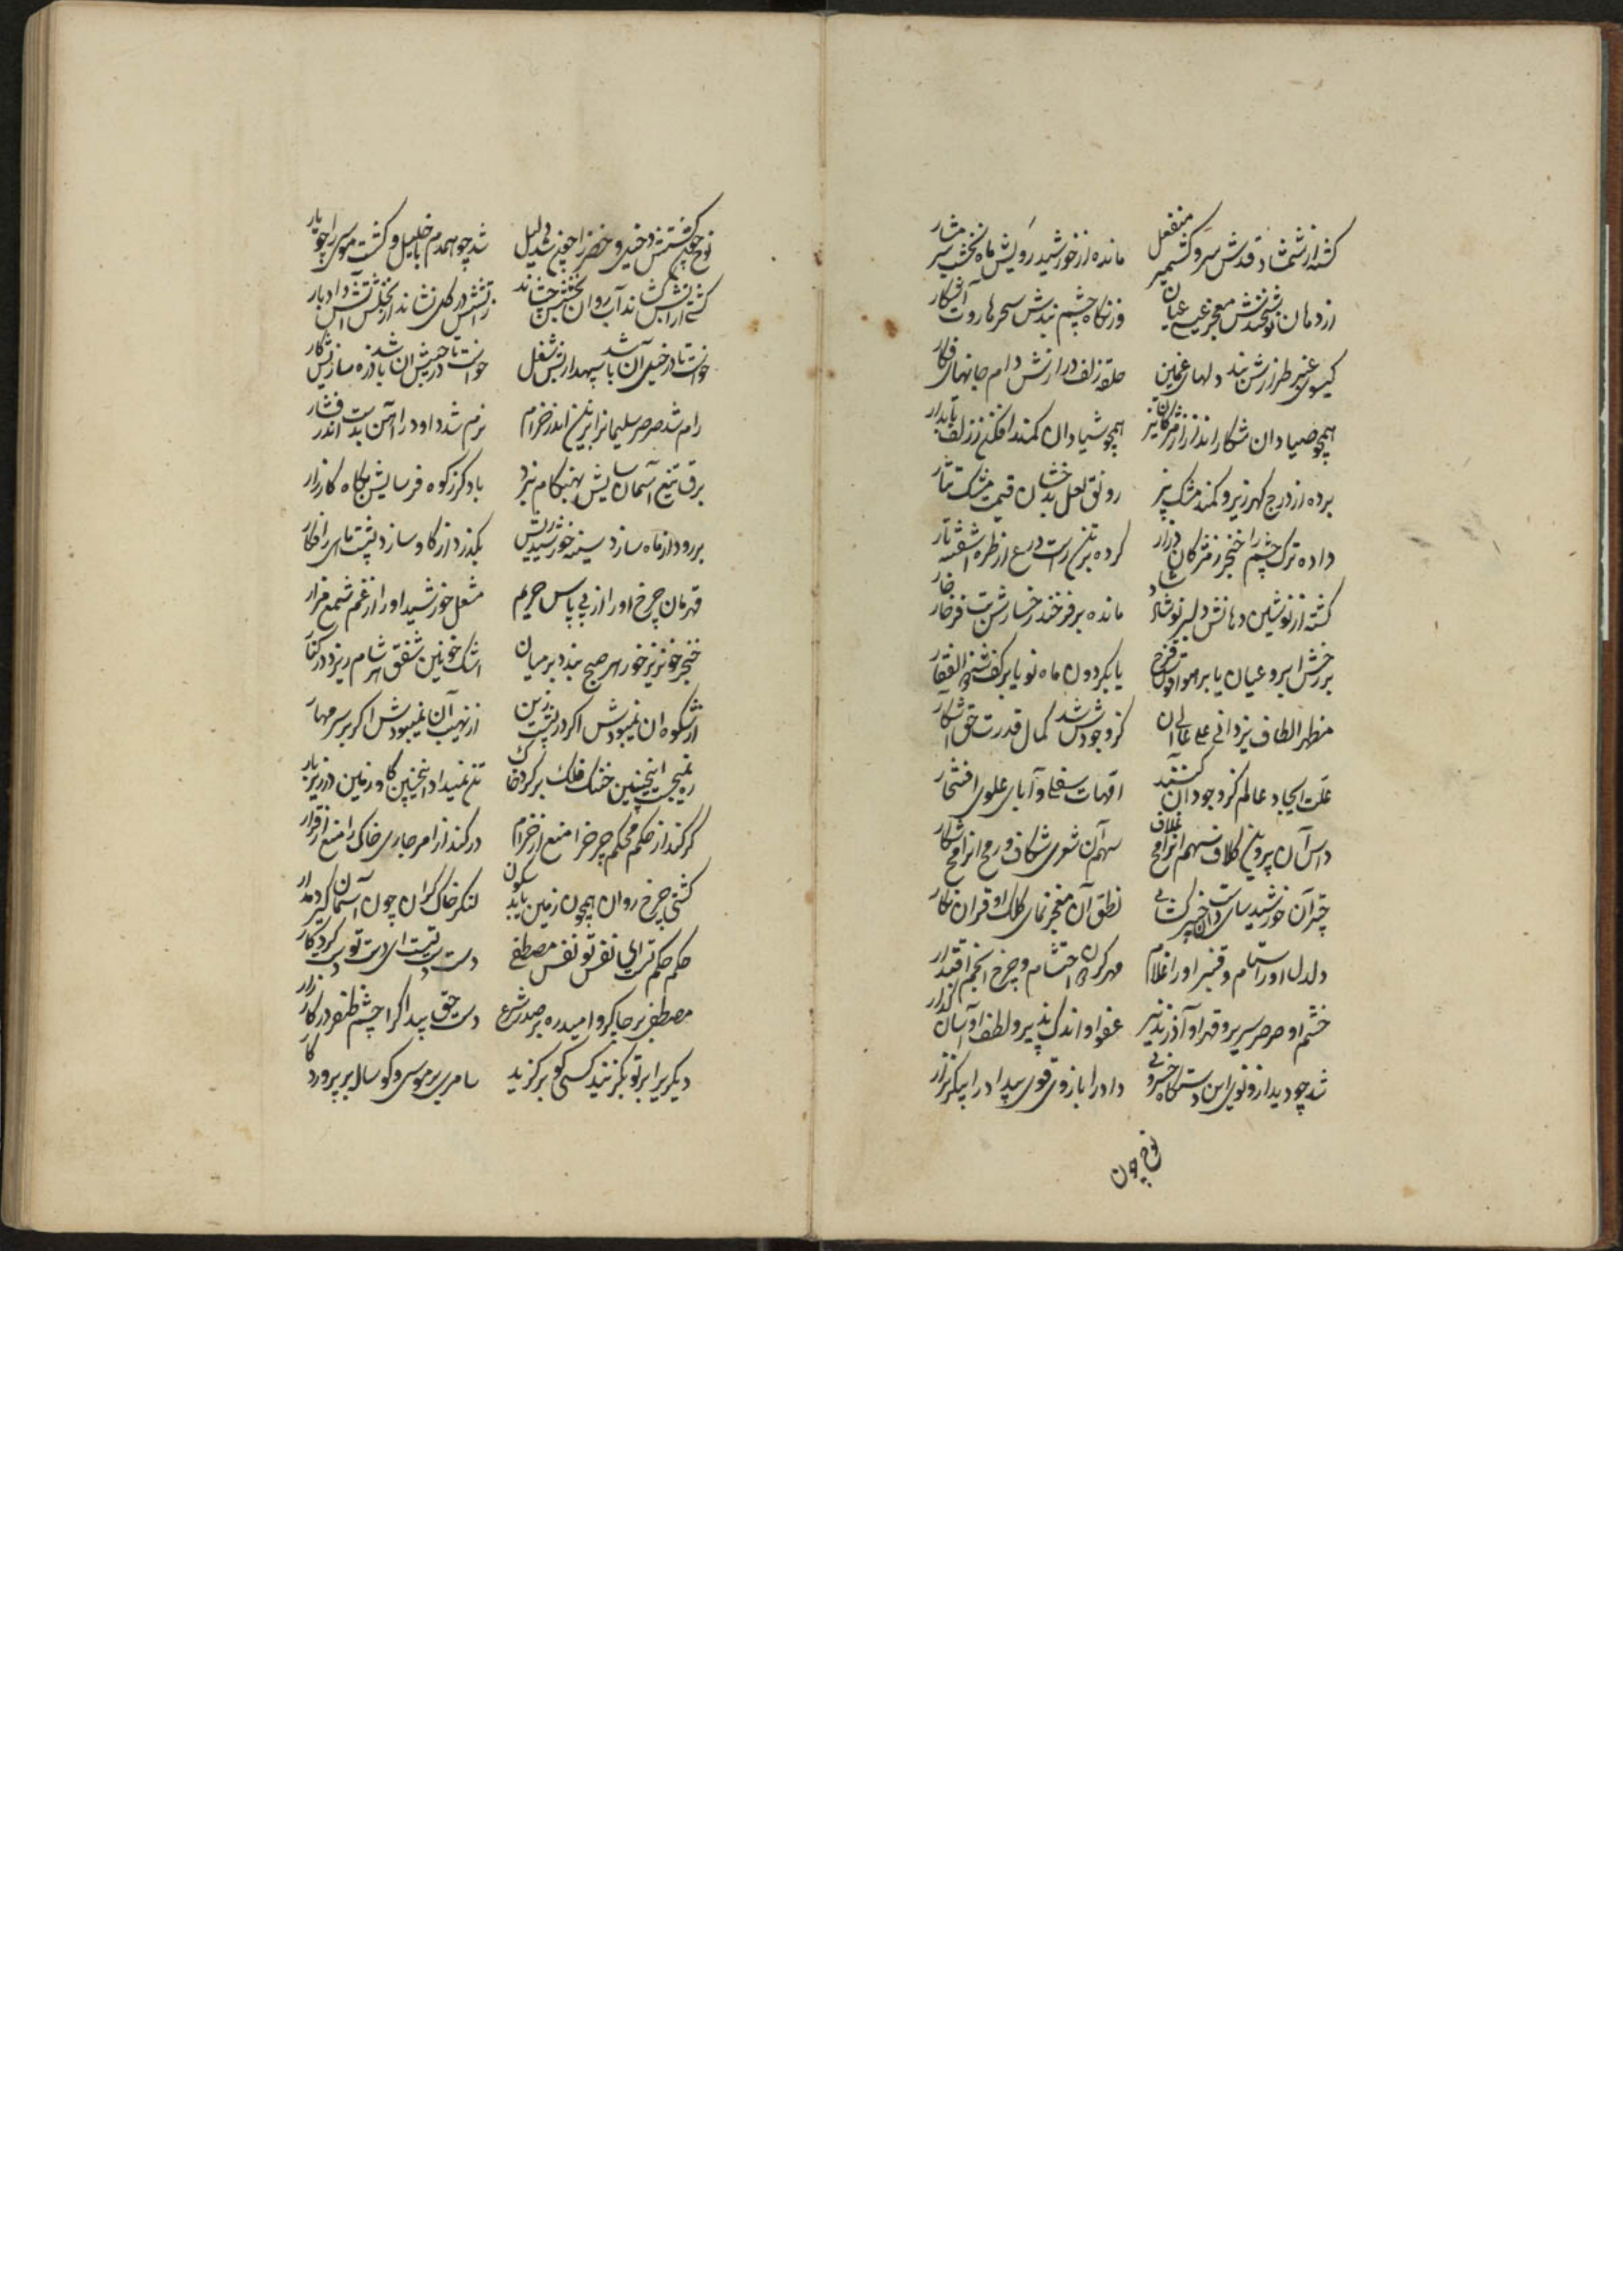 گشته از شمشاد قدش سرو کشمیر منفعل مانده از خورشید رویش ماه نخشب شرمسار
از دهان نوشخندش معجز عیسی عیان وز نگاه چشم بندش سحر هاروت آشکار
گیسوی عنبر طرازش بند دلهای غمین حلقه زلف درازش دام جانهای فکار
همچو صیادان شکار انداز از مژگان تیز همچو شیادان کمند افکن ز زلف تابدار
برده از درج گهر ریز و کمند مشک بیز رونق لعل بدخشان قیمت مشک تتار
داده ترک چشم را خنجر ز مژگان دراز کرده بر تن راست درع از طره آشفته تار
گشته از نوشین دهانش دلبر نوشاد شاد مانده بر فرخنده رخسارش بت فرخار خار
بر رخش ابرو عیان یا بر هوا قوس قزح یا بگردون ماه نو یا بر کف شه ذوالفقار
مظهر الطاف یزدانی علی عالی آن کز وجودش شد کمال قدرت حق آشکار
علت ایجاد عالم کز وجود آن کنند امهات سفلی و آبای علوی افتخار
داس آن پروین کلاف سهم آن رامح غلاف سهم آن شعری شکاف و رمح آن رامح شکار
چتر آن خورشید سای دست آن خیبر گشای نطق آن معجز نمای کلک او قران نگار
دلدل او را ستام و قنبر او را غلام مهر گردان احتشام و چرخ انجم اقتدار
خشم او صرصر سریر و قهر او آذر نذیر عفو او اندک پذیر و لطف او آسان گذار
شد چو دید از و نوی این دستگاه خسروی داد را بازوی قوی بیداد را پیکر نزار
نوح چون
نوح چون کشتیش دخیل و خضر را چون شد دلیل شد چو همدم با خلیل و گشت موسی را چو یار
کشتی آن را بر آب روان بخشش چشاند ز آتش در گل نشاند از نخلش آتش داد بار
خواست تا در خیل آن باشد سپهدار شغل خواست تا در جیش آن باشد زره سازیش کار
رام شد صرصر سلیمان را بر تن اندر خرام نرم شد داود را آهن بدست اندر فشار
برق تیغ آسمان سایش بهنگام نبرد باد گرز کوه فرسایش بگاه کارزار
بر رود از ماه سازد سینه خورشید ریش بگذرد از گاو سازد پشت ماهی را فکار
قهرمان چرخ او را از پی پاس حریم مشعل خورشید او را از غم شمع مزار
خنجر خونریز خور هر صبح بندد بر میان اشک خونین شفق هر شام ریزد در کنار
از شکوه آن نمیبودش اگر در پشت زین از نهیب آن نمیبودش اگر بر سر مهار
ره نمیجست اینچنین خنگ فلک بر گرد خاک تن نمیداد اینچنین گاو زمین در زیر بار
گر کند از حکم محکم چرخ را منع از خرام در کند از امر جاری خاک را منع از قرار
کشتی چرخ روان همچون زمین یابد سکون لنگر خاک گران چون آسمان گیرد مدار
حکم حکم تست ای نفس تو نفس مصطفی دست دست تست ای دست تو دست کردگار
مصطفی بر جا گرو امیدره بر صدر شرع دست حق پیدا اگر چشم ظفر در کارزار
دیگری را بر تو بگزیند کسی کو برگزید سامری بر موسی و گوساله بر پروردگار